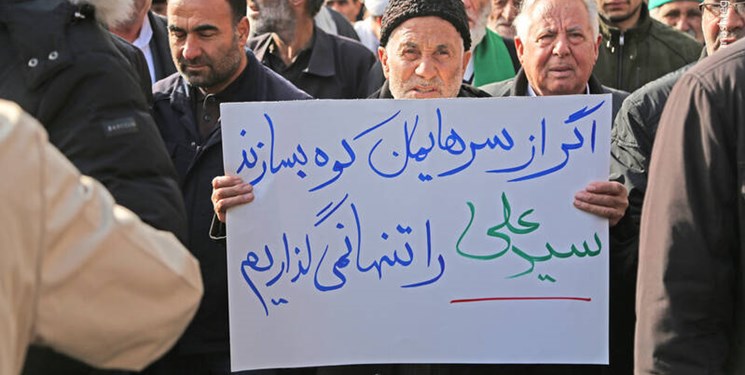 اگر از سرهایمان کوه بسازند
سید علی را تنها نمی گذاریم